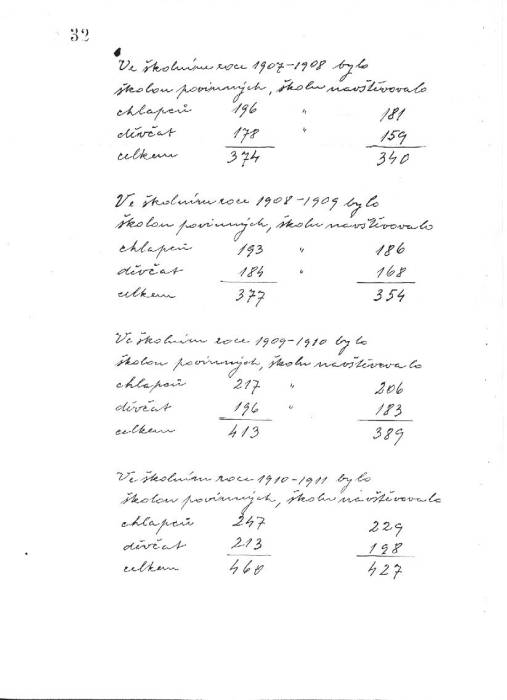 32
Ve školním roce 1907-1908 bylo
školou povinných, školu navštěvovalo
chlapců 196 " 181
děvčat 178 " 159
celkem 374 340
Ve školním roce 1908-1909 bylo
školou povinných, školu navštěvovalo
chlapců 193 " 186
děvčat 184 " 168
celkem 377 354
Ve školním roce 1909-1910 bylo
školou povinných, školu navštěvovalo
chlapců 217 " 206
děvčat 196 " 183
celkem 413 389
Ve školním roce 1910-1911 bylo
školou povinných, školu navštěvovalo
chlapců 247 229
děvčat 213 198
celkem 460 427